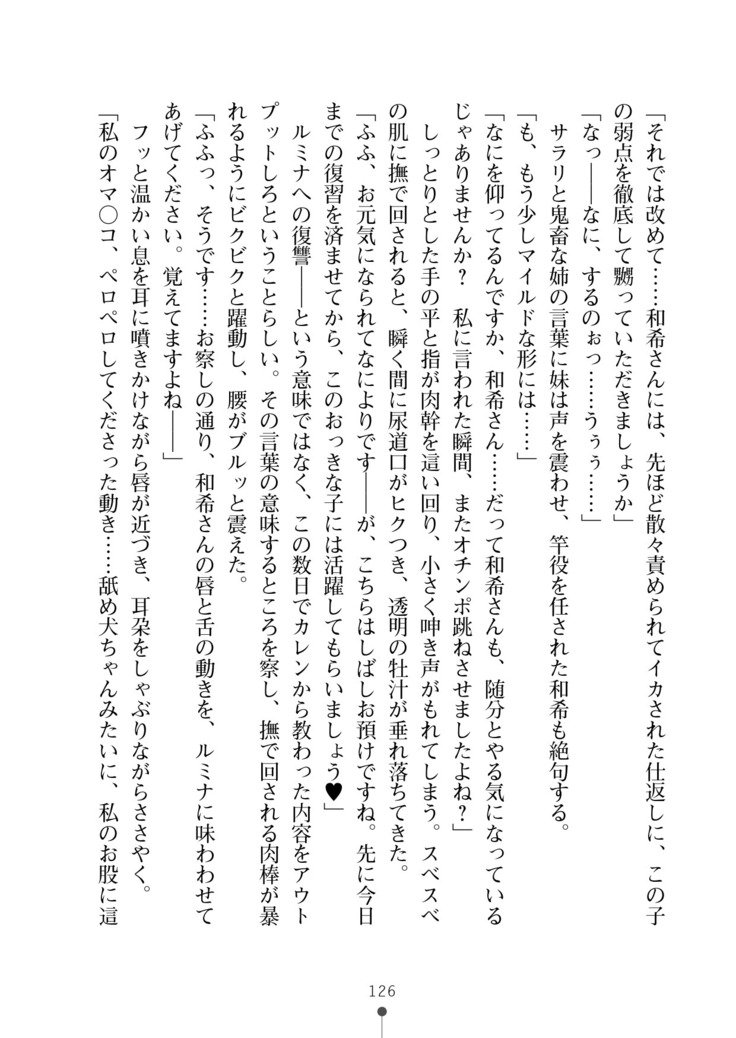 「それでは改めて……和希さんには、先ほど散々責められてイカされた仕返しに、この子
の弱点を徹底して嬲っていただきましょうか」
「なっ――なに、するのぉっ……うぅぅ……」
　サラリと鬼畜な姉の言葉に妹は声を震わせ、竿役を任された和希も絶句する。
「も、もう少しマイルドな形には……」
「なにを仰ってるんですか、和希さん……だって和希さんも、随分とやる気になっている
じゃありませんか？　私に言われた瞬間、またオチンポ跳ねさせましたよね？」
　しっとりとした手の平と指が肉幹を這い回り、小さく呻き声がもれてしまう。スベスベ
の肌に撫で回されると、瞬く間に尿道口がヒクつき、透明の牡汁が垂れ落ちてきた。
「ふふ、お元気になられてなによりです――が、こちらはしばしお預けですね。先に今日
までの復習を済ませてから、このおっきな子には活躍してもらいましょう♥」
　ルミナへの復讐――という意味ではなく、この数日でカレンから教わった内容をアウト
プットしろということらしい。その言葉の意味するところを察し、撫で回される肉棒が暴
れるようにビクビクと躍動し、腰がブルッと震えた。
「ふふっ、そうです……お察しの通り、和希さんの唇と舌の動きを、ルミナに味わわせて
あげてください。覚えてますよね――」
　フッと温かい息を耳に噴きかけながら唇が近づき、耳朶をしゃぶりながらささやく。
「私のオマ○コ、ペロペロしてくださった動き……舐め犬ちゃんみたいに、私のお股に這
126